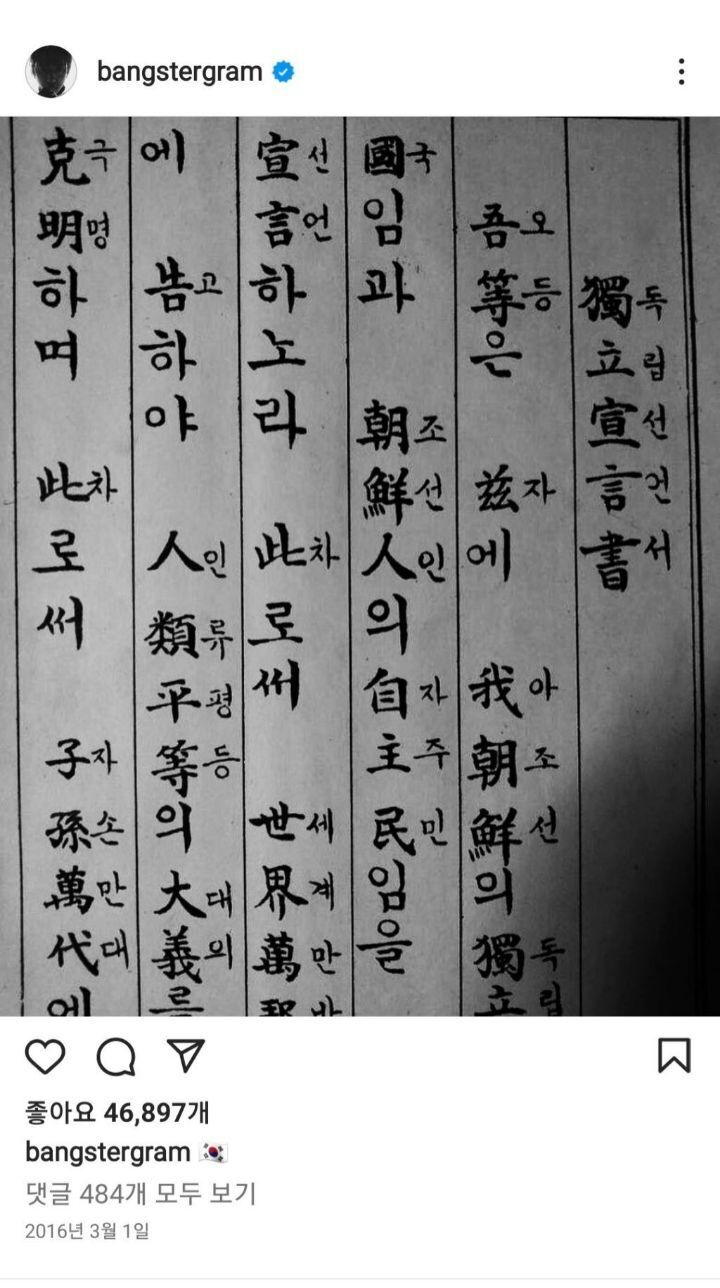 bangstergram
獨독立립宣선言언書서
吾오等등은 玆자에 我아朝조鮮선의 獨독立립
國국임과 朝조鮮선人인의 自자主주民민임을
宣선言언하노라 此차로써 世세界계萬만
에 告고하야 人인類류平평等등의 大대義의를
克극明명하며 此차로써 子자孫손萬만代대에
좋아요 46,897개
bangstergram 🇰🇷
댓글 484개 모두 보기
2016년 3월 1일